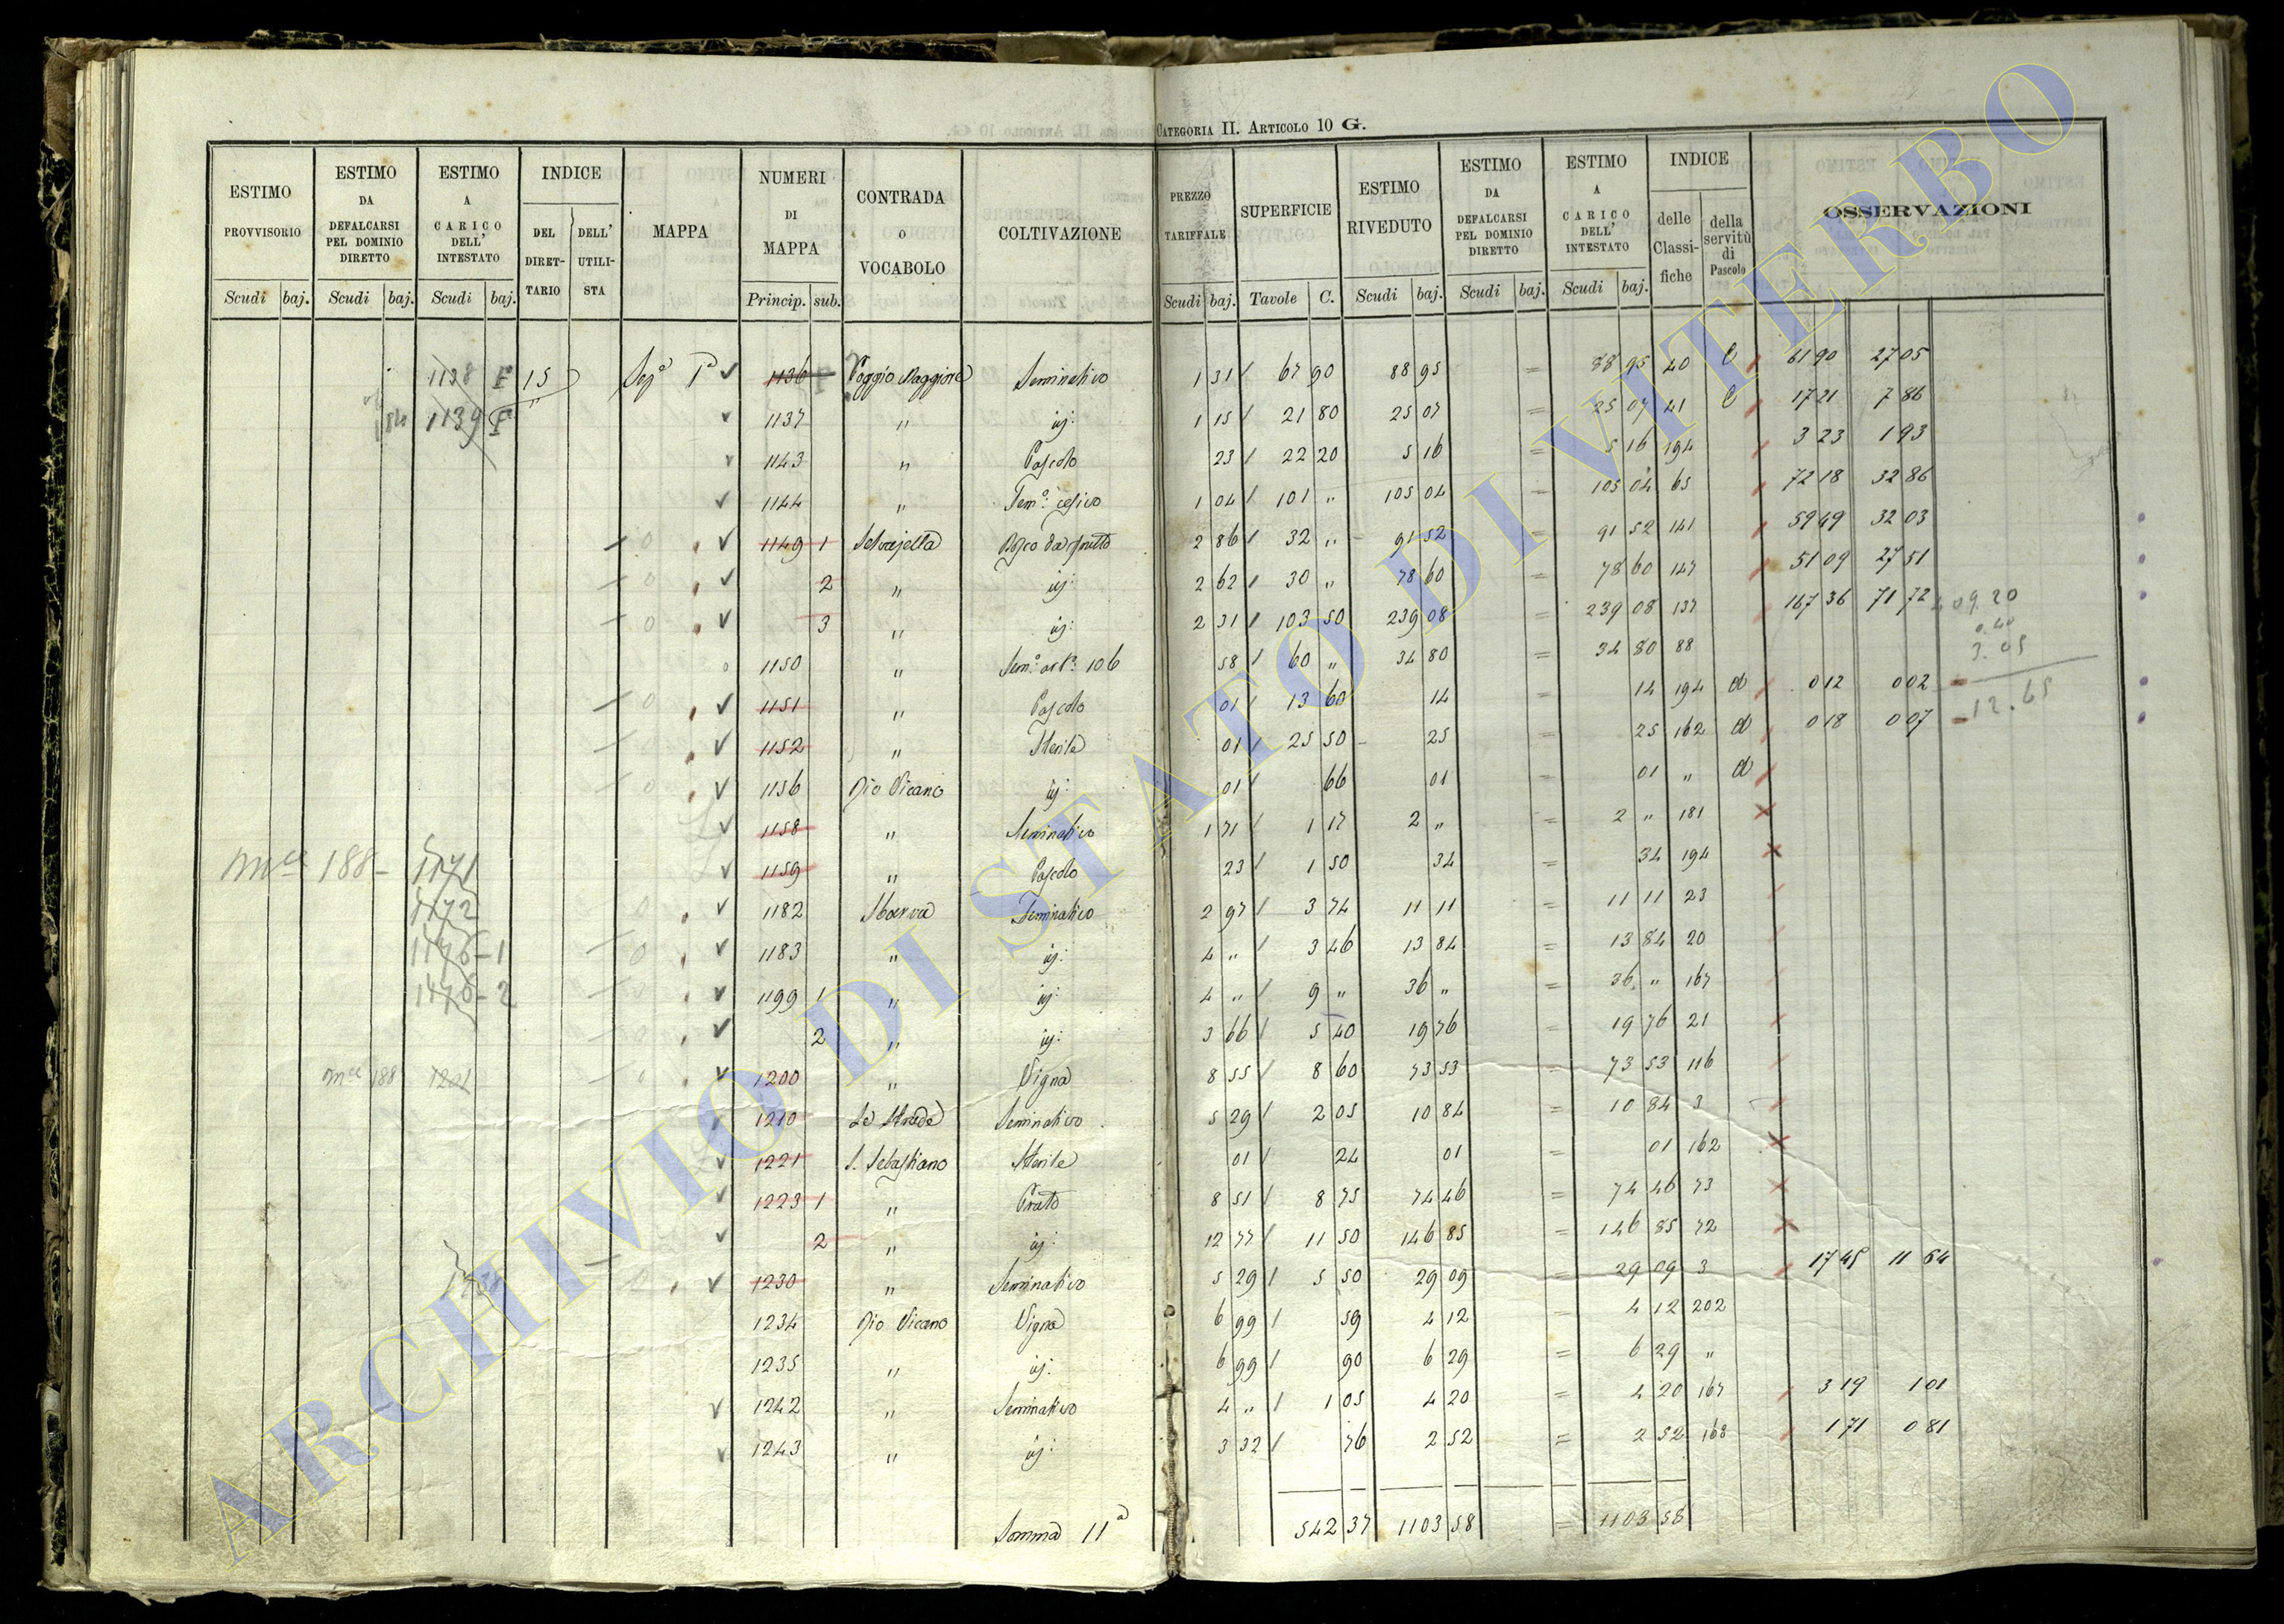 CATEGORIA II. ARTICOLO 10 G.
ESTIMO PROVVISORIO | ESTIMO DA DEFALCARSI PEL DOMINIO DIRETTO | ESTIMO A CARICO DELL' INTESTATO | INDICE DEL DIRETTARIO | DELL' UTILISTA | MAPPA | NUMERI DI MAPPA | CONTRADA O VOCABOLO | COLTIVAZIONE | PREZZO TARIFFALE | SUPERFICIE | ESTIMO RIVEDUTO | ESTIMO DA DEFALCARSI PEL DOMINIO DIRETTO | ESTIMO A CARICO DELL' INTESTATO | INDICE delle Classifiche | della servitù di Pascolo | OSSERVAZIONI
Scudi baj. Scudi baj. Scudi baj. Princip. sub. Scudi baj. Tavole C. Scudi baj. Scudi baj. Scudi baj.
1138 E 15 1136 Poggio Maggiore Seminativo 1 31 67 90 88 95 = 88 95 40 61 90 27 05
1139 1137 " ij: 1 15 21 80 25 07 = 25 07 41 17 21 7 86
1143 " Pascolo 23 22 20 5 16 = 5 16 194 3 23 1 93
1144 " Sem.o cesivo 1 04 101 " 105 04 = 105 04 65 72 18 32 86
1149 1 Selvajella Bosco da frutto 2 86 32 " 91 52 = 91 52 141 59 49 32 03
2 " ij: 2 62 30 " 78 60 = 78 60 147 51 09 27 51
3 " ij: 2 31 103 50 239 08 = 239 08 137 167 36 71 72 09.20
0.40
1150 " 106 58 60 " 34 80 = 34 80 88 3.05
1151 " Pascolo 01 13 60 14 = 14 194 d 0 12 0 02
12.65
1152 " Sterile 01 25 50 25 = 25 162 d 0 18 0 07
1156 Rio Vicano ij: 01 66 01 01 " d
1158 " Seminativo 1 71 1 17 2 " = 2 " 181
188- 1171 1159 " Pascolo 23 1 50 34 = 34 194
1172 1182 Sbarra Seminativo 2 97 3 74 11 11 = 11 11 23
1176-1 1183 " ij: 4 " 3 46 13 84 = 13 84 20
1176-2 1199 1 " ij: 4 " 9 " 36 " = 36 " 167
2 " ij: 3 66 5 40 19 76 = 19 76 21
188 1201 1200 " Vigna 8 55 8 60 73 53 = 73 53 116
1210 Le Strade Seminativo 5 29 2 05 10 84 = 10 84 3
1221 S. Sebastiano Sterile 01 24 01 = 01 162
1223 1 " Prato 8 51 8 75 74 46 = 74 46 73
2 " ij: 12 77 11 50 146 85 = 146 85 72
1230 " Seminativo 5 29 5 50 29 09 = 29 09 3 17 45 11 64
1234 Rio Vicano Vigna 6 99 59 4 12 = 4 12 202
1235 " ij: 6 99 90 6 29 = 6 29 "
1242 " Seminativo 4 " 1 05 4 20 = 4 20 167 3 19 1 01
1243 " ij: 3 32 76 2 52 = 2 52 168 1 71 0 81
Somma 11a 542 37 1103 58 = 1103 58
ARCHIVIO DI STATO DI VITERBO